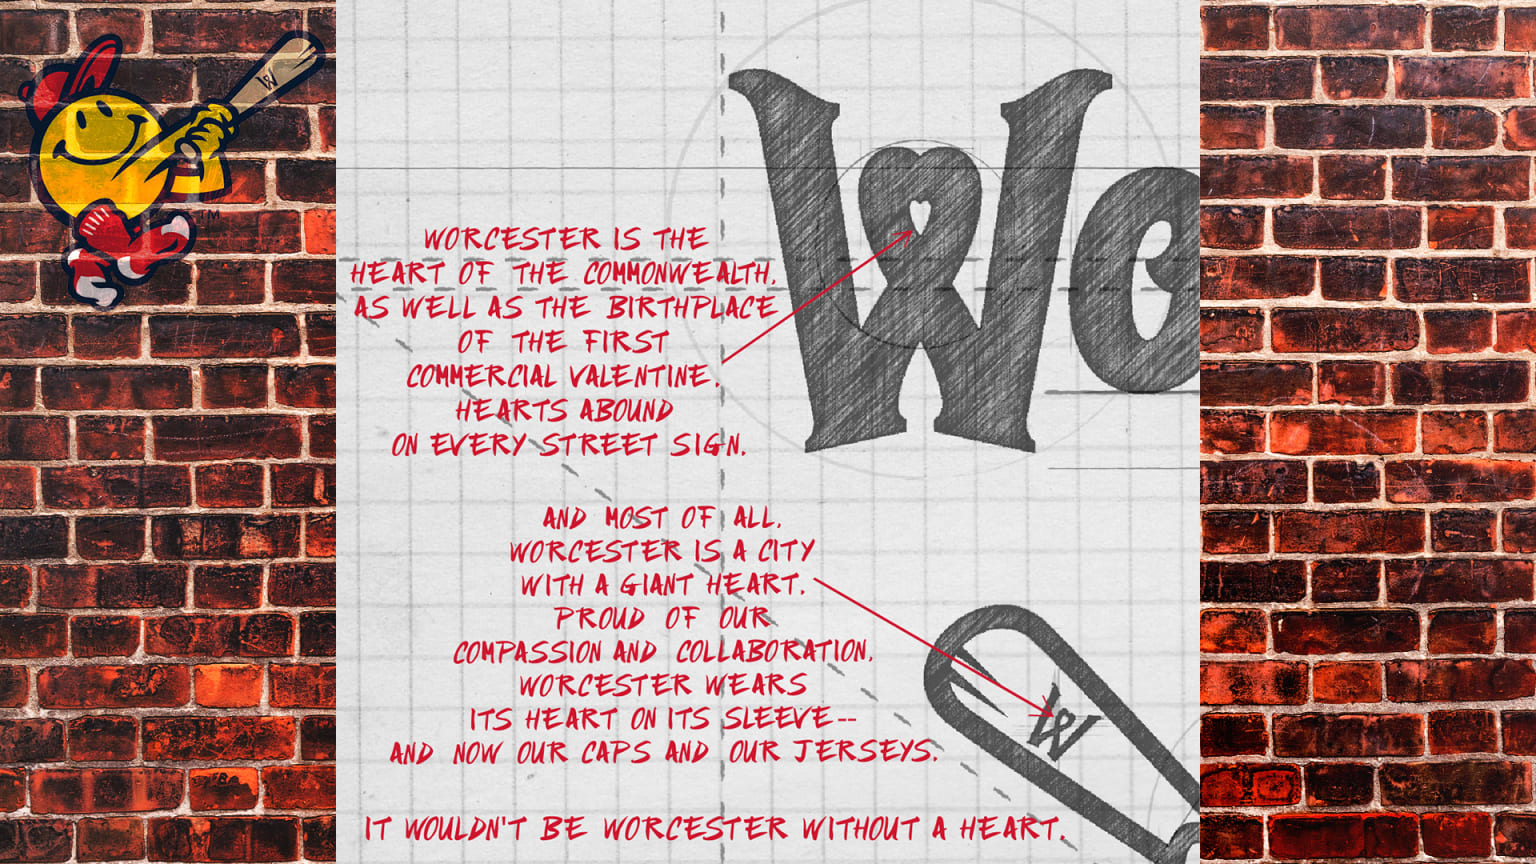 W
TM
Wo
WORCESTER IS THE
HEART OF THE COMMONWEALTH,
AS WELL AS THE BIRTHPLACE
OF THE FIRST
COMMERCIAL VALENTINE.
HEARTS ABOUND
ON EVERY STREET SIGN.
AND MOST OF ALL,
WORCESTER IS A CITY
WITH A GIANT HEART.
PROUD OF OUR
COMPASSION AND COLLABORATION,
WORCESTER WEARS
ITS HEART ON ITS SLEEVE --
AND NOW OUR CAPS AND OUR JERSEYS.
W
IT WOULDN'T BE WORCESTER WITHOUT A HEART.